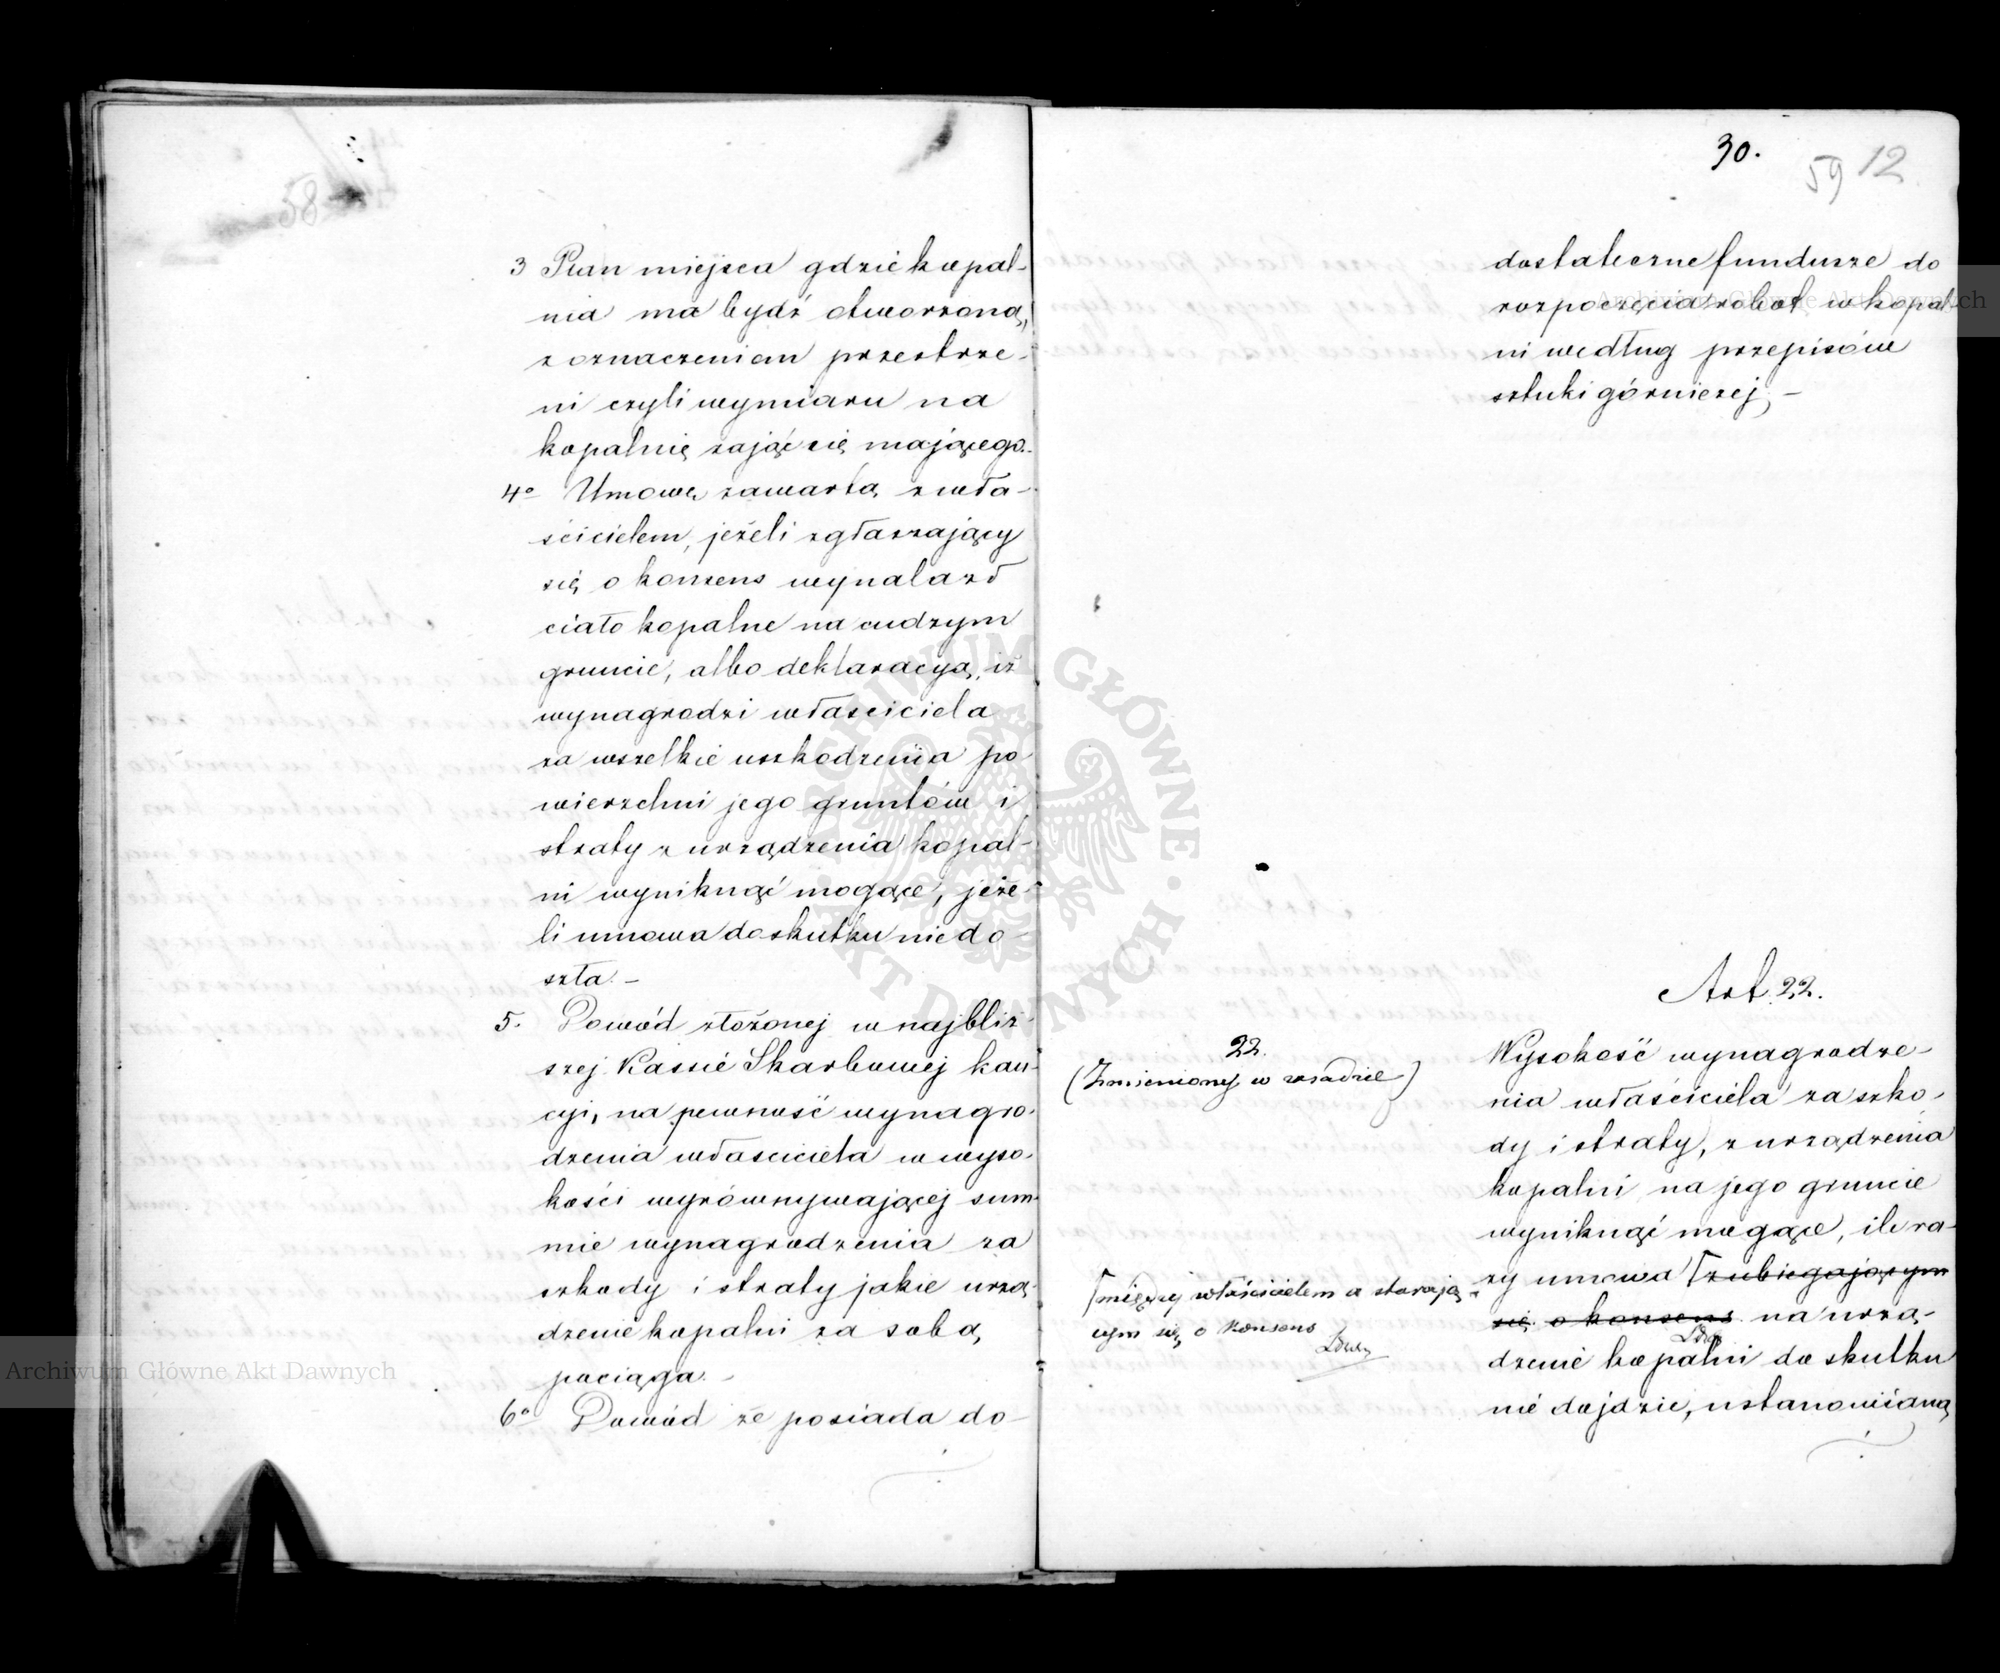 58
3 Plan miejsca gdzie kopal-
nia ma bydź otworzoną,
z oznaczeniem przestrze-
ni czyli wymiaru na
kopalnię zająć się mającego.
4o Umowę zawartą z wła-
ścicielem, jeżeli zgłaszający
się o konsens wynalazł
ciało kopalne na cudzym
gruncie, albo deklaracyą, iż
wynagrodzi właściciela
za wszelkie uszkodzenia po-
wierzchni jego gruntów i
straty z urządzenia kopal-
ni wyniknąć mogące, jeże-
li umowa do skutku nie do-
szła.-
5. Dowód złożonej w najbliż-
szej Kassie Skarbowej kau-
cyi, na pewność wynagro-
dzenia właściciela w wyso-
kości wyrównywającej sum-
mie wynagrodzenia za
szkody i straty jakie urzą-
dzenie kopalni za sobą
pociąga.-
6o Dowód że posiada do-
30.
59 12
dostateczne fundusze do
rozpoczęcia robot w kopal-
ni według przepisów
sztuki górniczej.-
Art. 22.
22.
(Zmieniony w zasadzie)
Wysokość wynagrodze-
nia właściciela za szko-
dy i straty, z urządzenia
kopalni na jego gruncie
wyniknąć mogące, ile ra-
zy umowa ⌈zubiegającym
się o konsens na urzą-
dzenie kopalni do skutku
nie dojdzie, ustanowioną
⌈między właścicielem a starają-
cym się o konsens
Archiwum Główne Akt Dawnych
Archiwum Główne Akt Dawnych
ARCHIWUM GŁÓWNE · AKT DAWNYCH ·